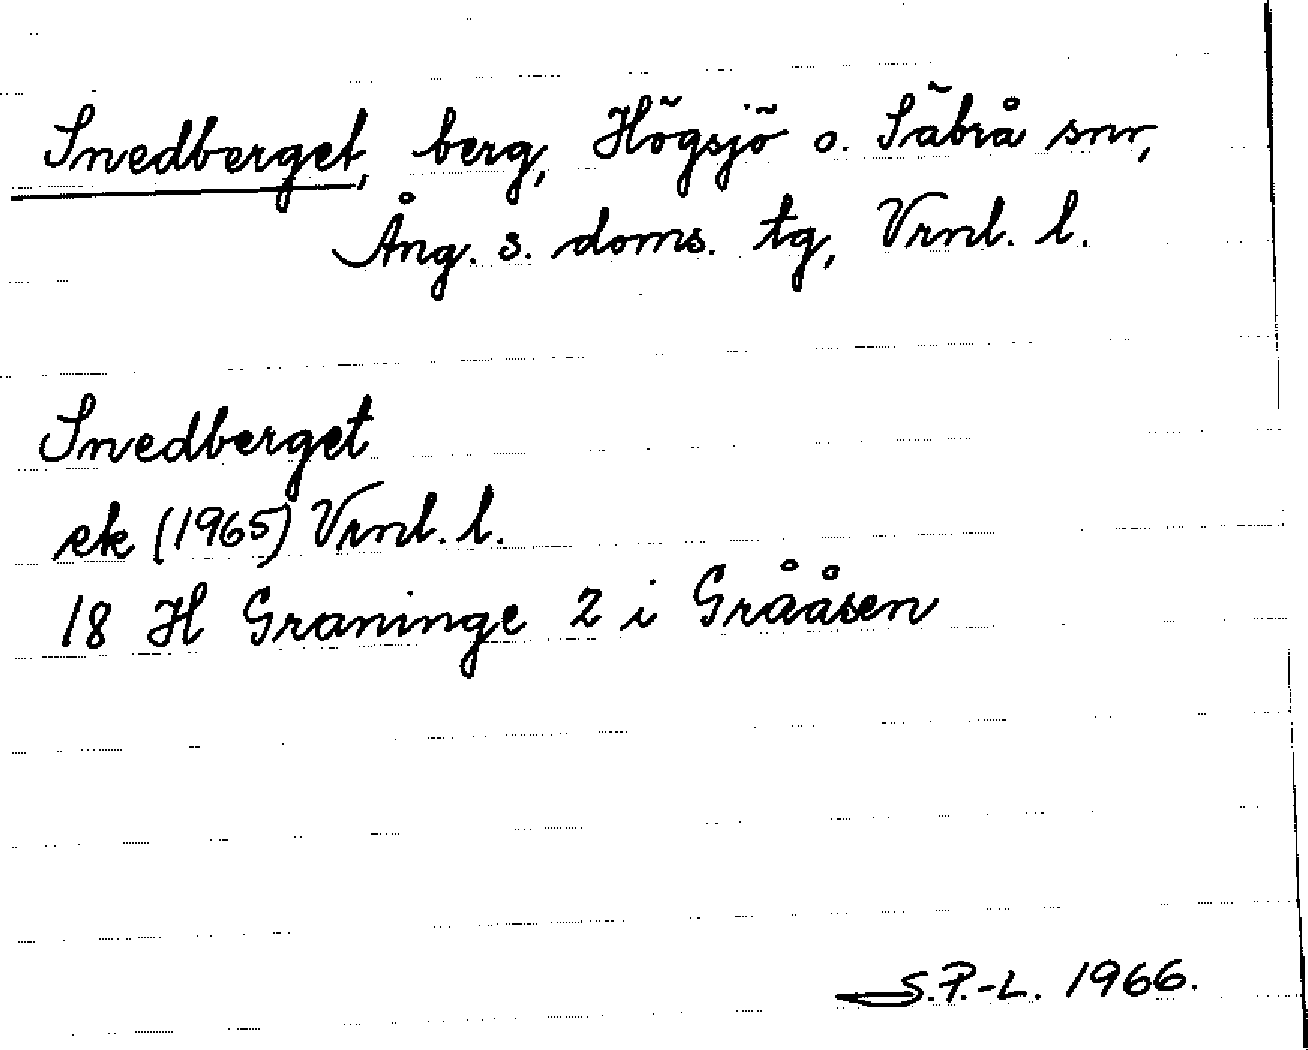 Snedberget, berg, Högsjö o. Säbrå snr,
Ång. s. doms. tg, Vrnl. l.
Snedberget
ek (1965) Vrnl. l.
18 H Graninge 2 i Grååsen
S.P.-L. 1966.